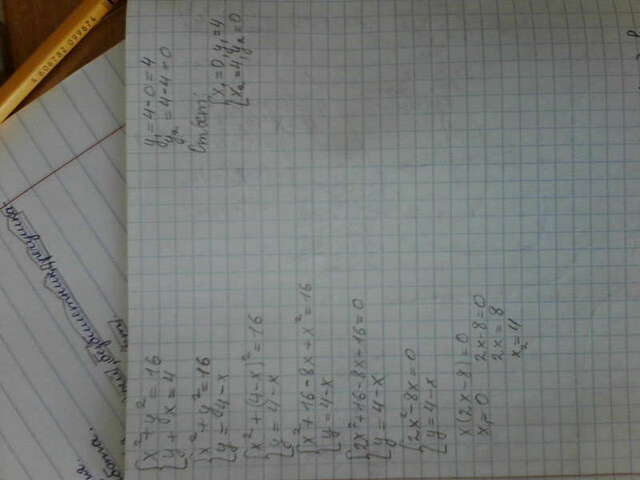 бота.
безбилетник,
x² + y² = 16
y + x = 4
x² + y² = 16
y = 4 - x
x² + (4-x)² = 16
y = 4 - x
x² + 16 - 8x + x² = 16
y = 4 - x
2x² + 16 - 8x - 16 = 0
y = 4 - x
2x² - 8x = 0
y = 4 - x
x(2x - 8) = 0
x₁ = 0 2x - 8 = 0
2x = 8
x₂ = 4
y₁ = 4 - 0 = 4
y₂ = 4 - 4 = 0
Ответ:
x₁ = 0, y₁ = 4
x₂ = 4, y₂ = 0